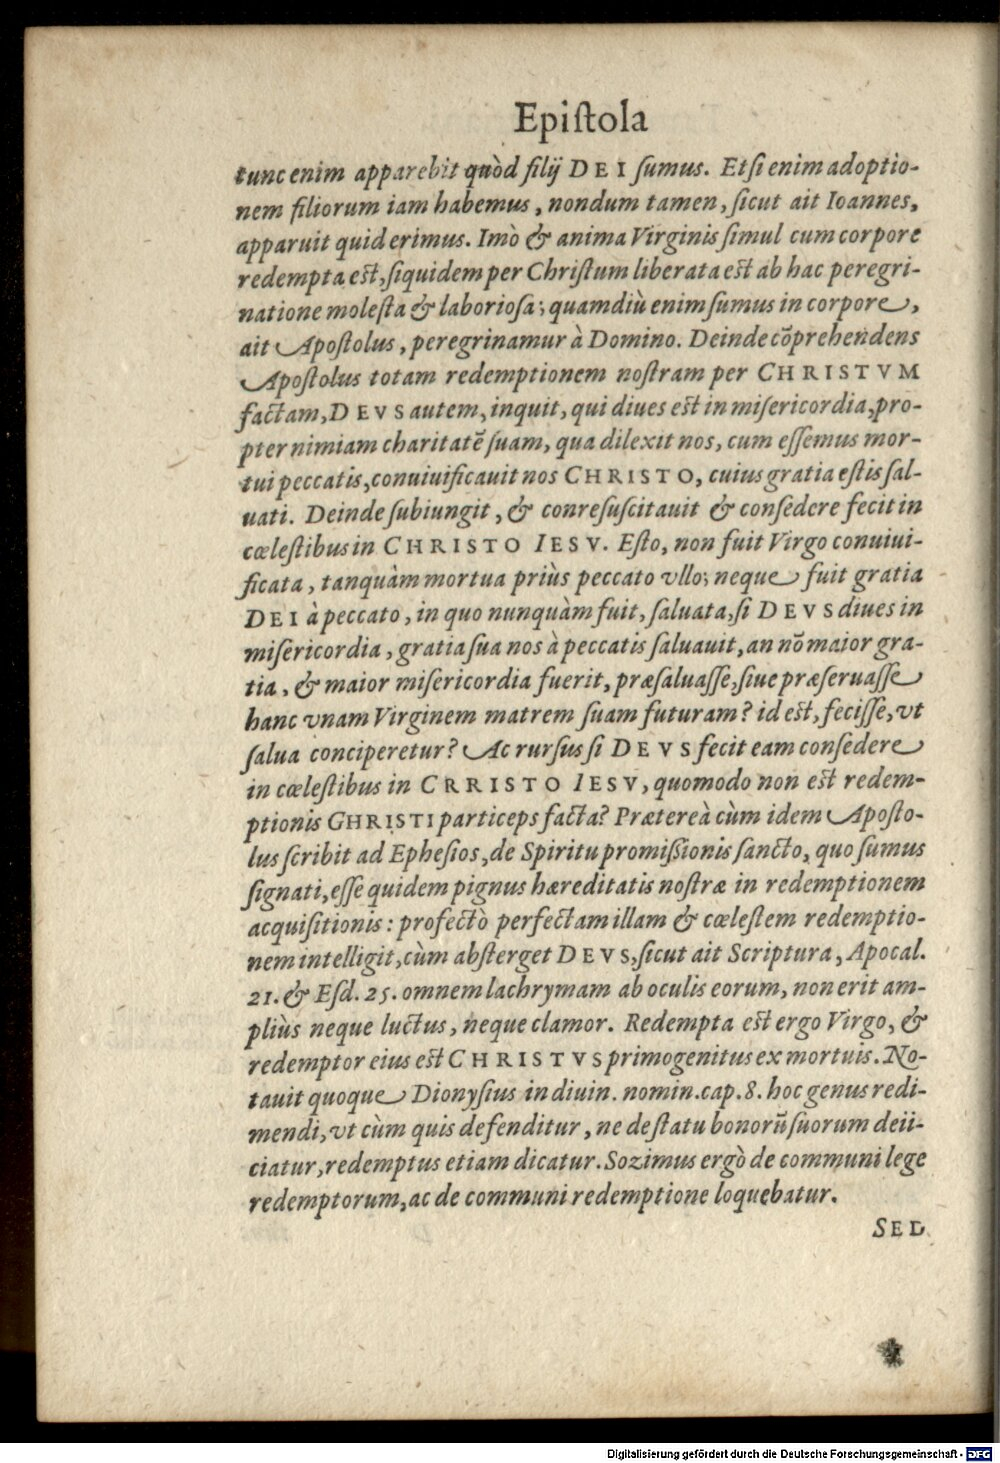 Epiſtola
tunc enim apparebit quòd filij DEI ſumus. Etſi enim adoptio-
nem filiorum iam habemus, nondum tamen, ſicut ait Ioannes,
apparuit quid erimus. Imò & anima Virginis ſimul cum corpore
redempta eſt, ſiquidem per Chriſtum liberata eſt ab hac peregri-
natione moleſta & laborioſa; quamdiù enim ſumus in corpore,
ait Apoſtolus, peregrinamur à Domino. Deinde cõprehendens
Apoſtolus totam redemptionem noſtram per CHRISTVM
factam, DEVS autem, inquit, qui diues eſt in miſericordia, pro-
pter nimiam charitatẽ ſuam, qua dilexit nos, cum eſſemus mor-
tui peccatis, conuiuificauit nos CHRISTO, cuius gratia eſtis ſal-
uati. Deinde ſubiungit, & conreſuſcitauit & conſedere fecit in
cœleſtibus in CHRISTO IESV. Eſto, non fuit Virgo conuiui-
ficata, tanquàm mortua priùs peccato vllo; neque fuit gratia
DEI à peccato, in quo nunquàm fuit, ſaluata, ſi DEVS diues in
miſericordia, gratia ſua nos à peccatis ſaluauit, an nõ maior gra-
tia, & maior miſericordia fuerit, præſaluaſſe, ſiue præſeruaſſe
hanc vnam Virginem matrem ſuam futuram? id eſt, feciſſe, vt
ſalua conciperetur? Ac rurſus ſi DEVS fecit eam conſedere
in cœleſtibus in CRRISTO IESV, quomodo non eſt redem-
ptionis GHRISTI particeps facta? Prætereà cùm idem Apoſto-
lus ſcribit ad Epheſios, de Spiritu promiſſionis ſancto, quo ſumus
ſignati, eſſe quidem pignus hæreditatis noſtræ in redemptionem
acquiſitionis: profectò perfectam illam & cœleſtem redemptio-
nem intelligit, cùm abſterget DEVS, ſicut ait Scriptura, Apocal.
21. & Eſd. 25. omnem lachrymam ab oculis eorum, non erit am-
pliùs neque luctus, neque clamor. Redempta eſt ergo Virgo, &
redemptor eius eſt CHRISTVS primogenitus ex mortuis. No-
tauit quoque Dionyſius in diuin. nomin. cap. 8. hoc genus redi-
mendi, vt cùm quis defenditur, ne de ſtatu bonorũ ſuorum deii-
ciatur, redemptus etiam dicatur. Sozimus ergò de communi lege
redemptorum, ac de communi redemptione loquebatur.
SED
Digitalisierung gefördert durch die Deutsche Forschungsgemeinschaft - DFG